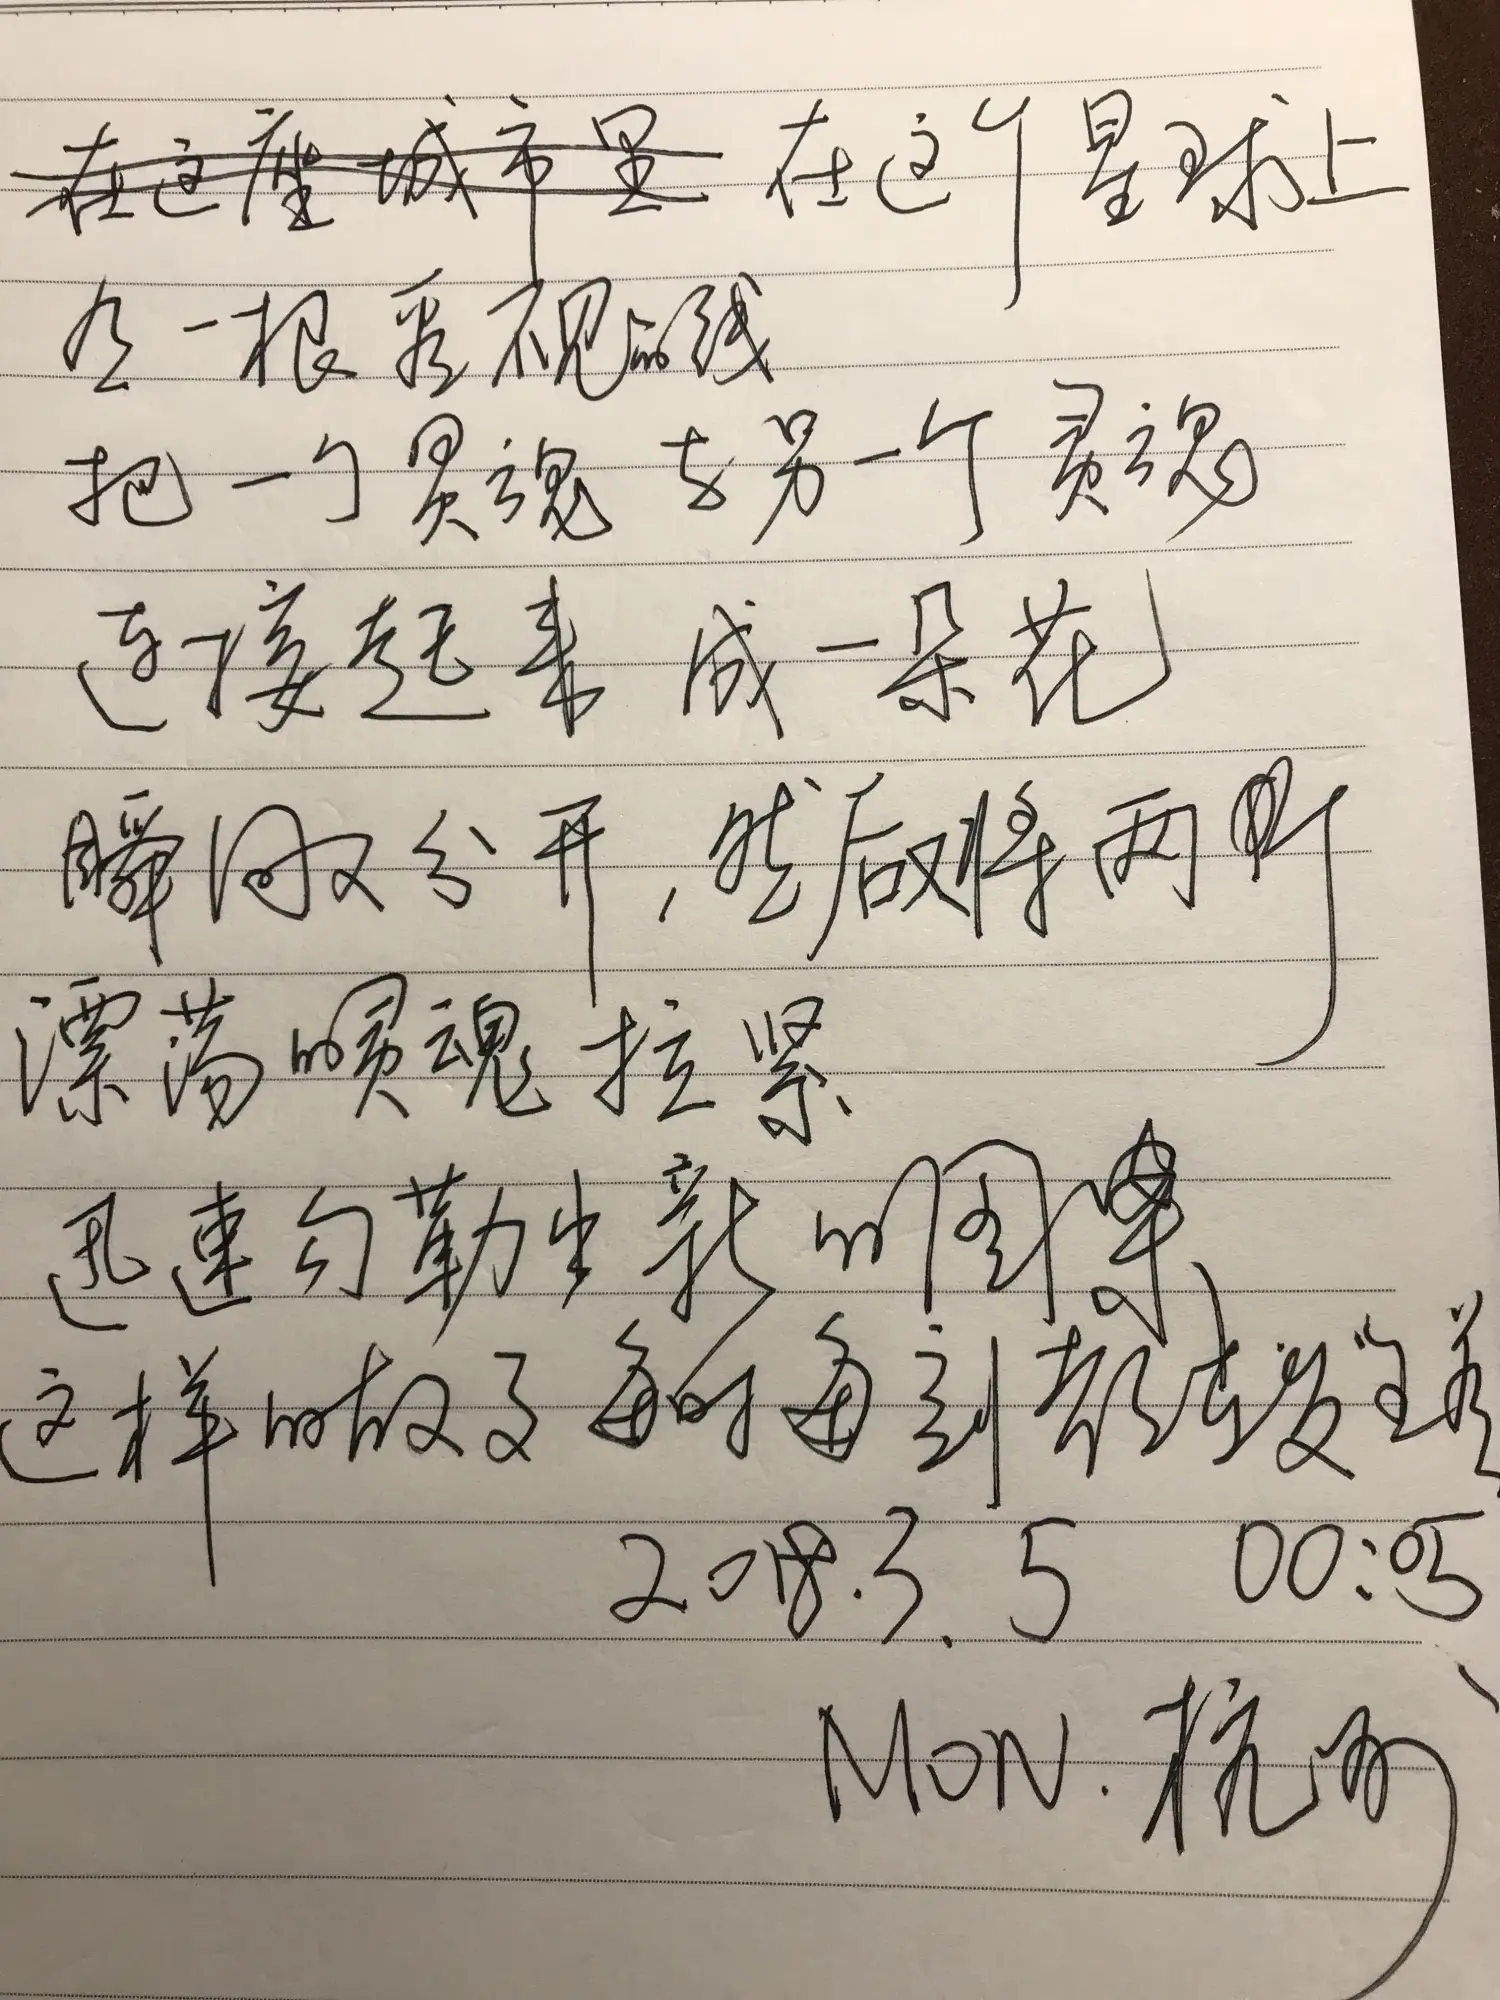 在这座城市里 在这个星球上
有一根看不见的线
把一个灵魂与另一个灵魂
连接起来 成一朵花
瞬间又分开,然后又将两个
漂荡的灵魂拉紧
迅速勾勒出新的图案
这样的故事每时每刻都在发生着
2018.3.5 00:05
MON.杭州